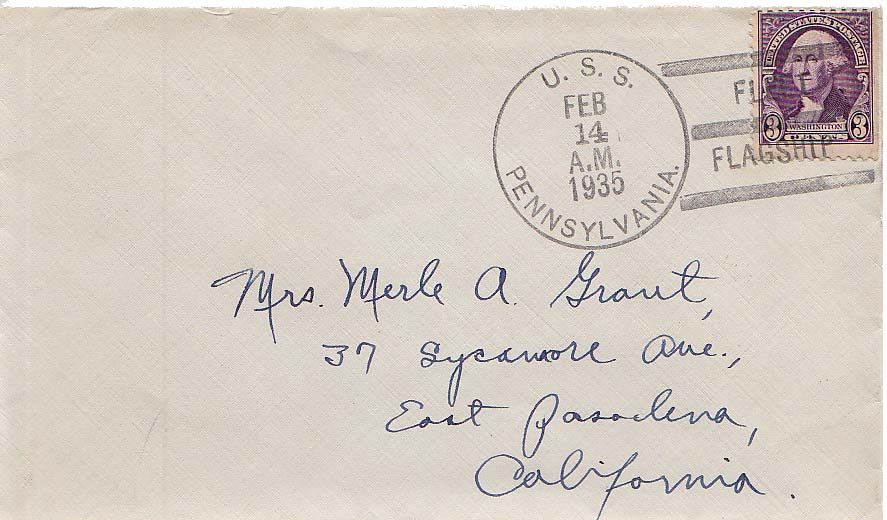 U. S. S.
FEB
14
A.M.
1935
PENNSYLVANIA.
FLEET
FLAGSHIP
UNITED STATES POSTAGE
3 WASHINGTON 3
CENTS
Mrs. Merle A. Grant,
37 Sycamore Ave.,
East Pasadena,
California.